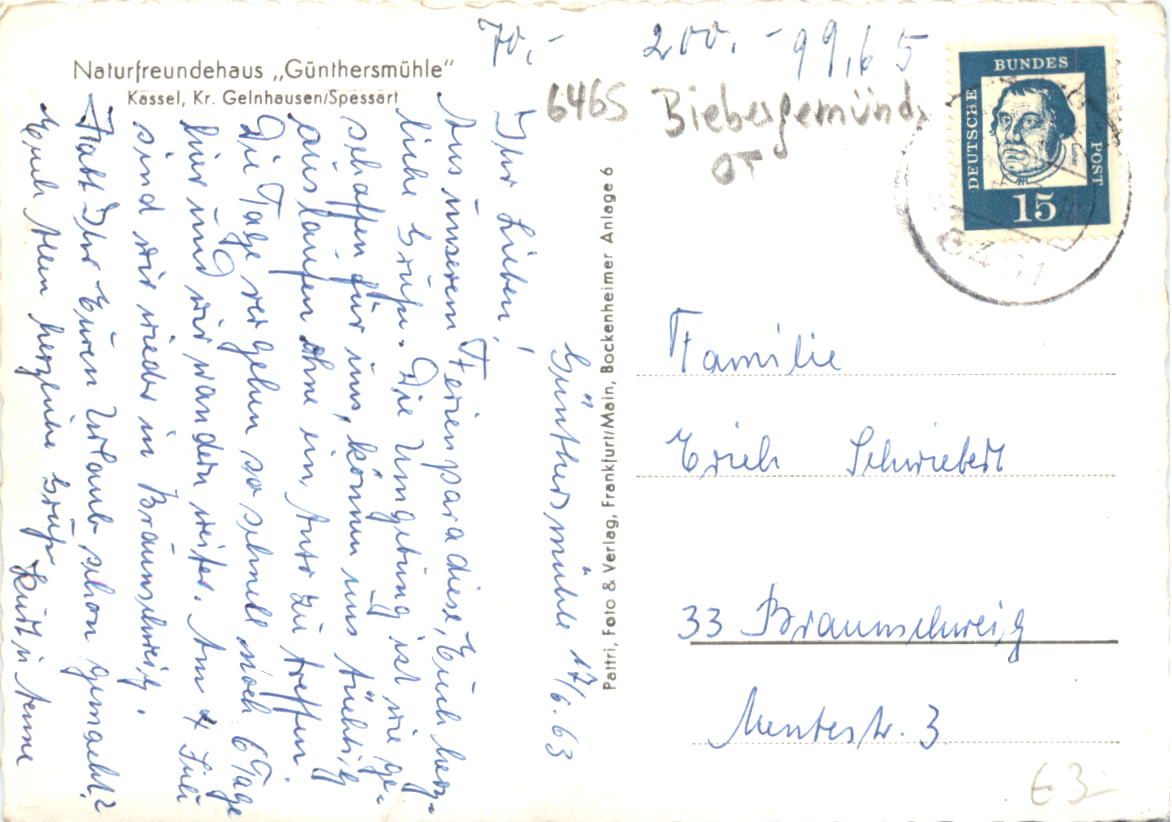 Naturfreundehaus „Günthersmühle"
Kassel, Kr. Gelnhausen/Spessart
70,-
200,-
99,65
6465 Biebergemünd
OT
DEUTSCHE BUNDES POST
Luther
15
Pattri, Foto & Verlag, Frankfurt/Main, Bockenheimer Anlage 6
Günthersmühle 17/6.63
Ihr Lieben!
Aus unserem Ferienparadiese, Euch herz-
liche Grüße. Die Umgebung ist wie ge-
schaffen für uns, können uns tüchtig
auslaufen ohne ein Auto zu treffen.
Die Tage vergehen so schnell noch 6 Tage
hier und wir wandern weiter. Am 4 Juli
sind wir wieder in Braunschweig.
Habt Ihr Euren Urlaub schon gemacht?
Euch allen herzliche Grüße Kurt u Aenne
Familie
Erich Schriebert
33 Braunschweig
Mentestr. 3
€ 3-